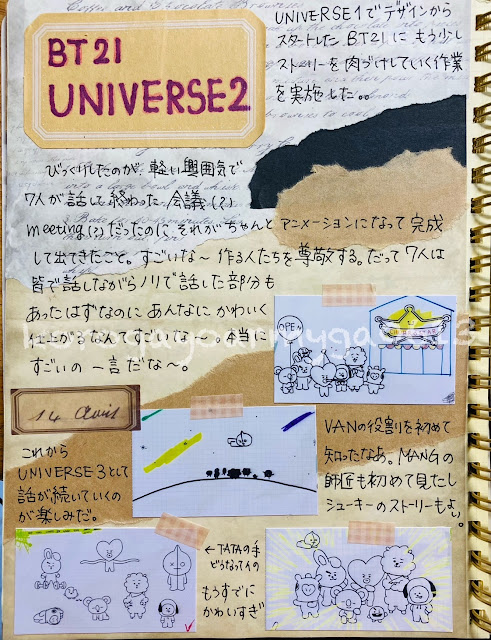 BT21
UNIVERSE2
UNIVERSE1でデザインから
スタートした BT21に もう少し
ストーリーを肉づけしていく作業
を実施した。。
びっくりしたのが、軽い雰囲気で
7人が話して終わった 会議(?)
meeting(?)だったのに それがちゃんと アニメーションになって 完成
して出てきたこと。すごいな～ 作る人たちを尊敬する。だって 7人は
皆で話しながら ノリで話した部分も
あったはずなのに あんなに かわいく
仕上がるなんて すごいな～。本当に
すごいの 一言だな～。
OPEN
14 Avril
これから
UNIVERSE3として
話が続いていくの
が楽しみだ。
VANの役割を初めて
知ったなあ。MANGの
師匠も初めて見たし
シューキーのストーリーもよい。
←TATAの手
どうなってんの
もうすでに
かわいすぎ